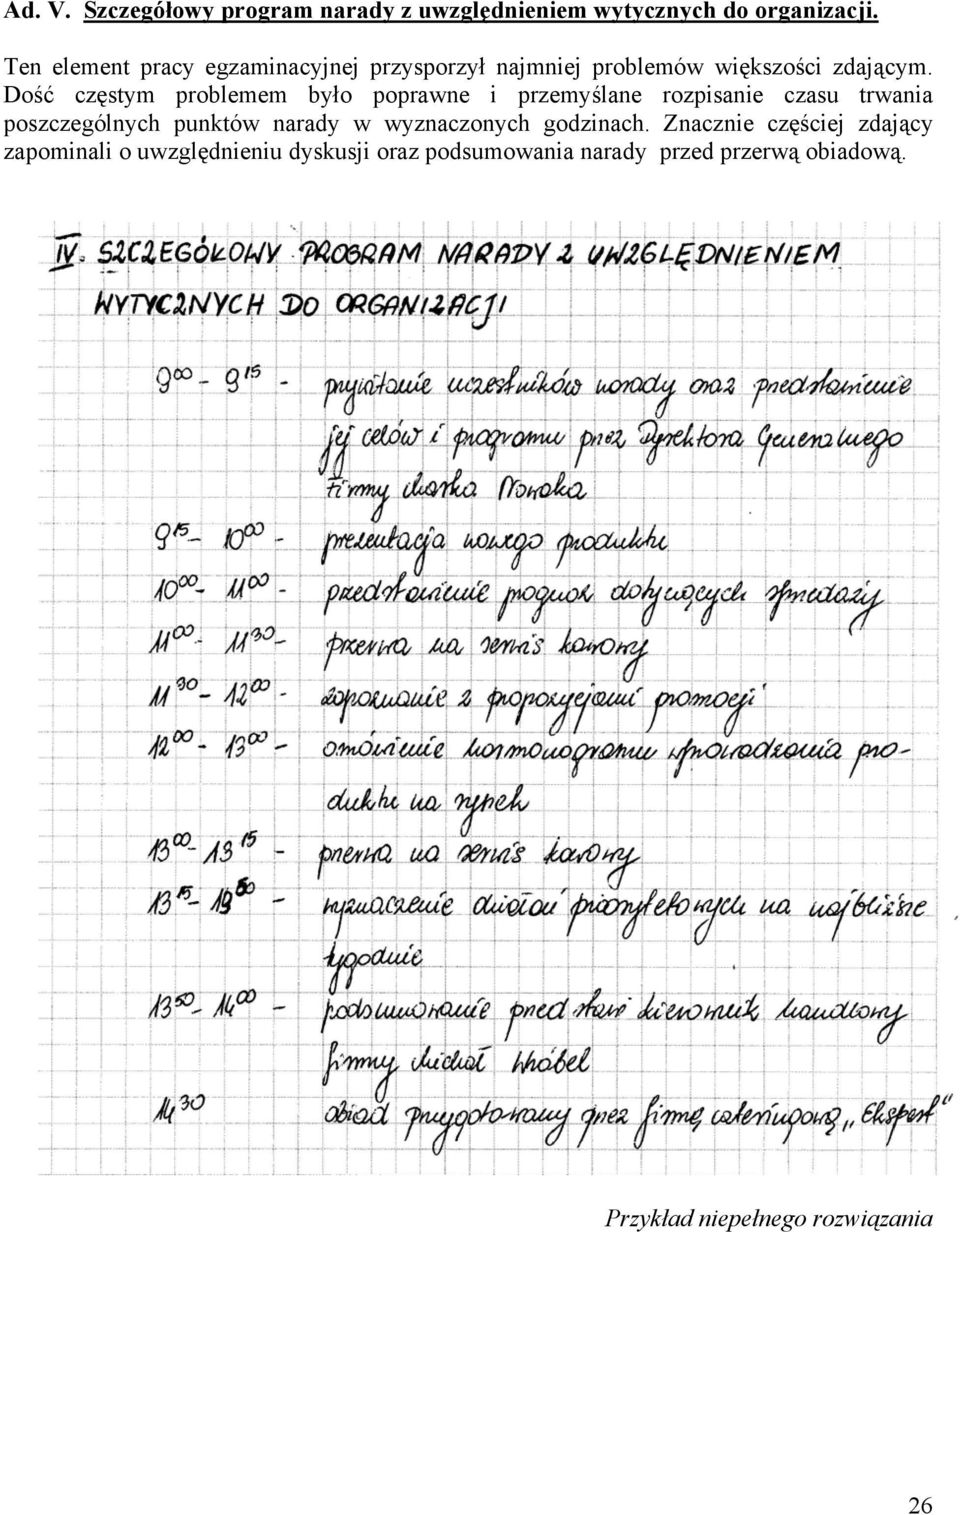 Ad. V. Szczegółowy program narady z uwzględnieniem wytycznych do organizacji.
Ten element pracy egzaminacyjnej przysporzył najmniej problemów większości zdającym.
Dość częstym problemem było poprawne i przemyślane rozpisanie czasu trwania
poszczególnych punktów narady w wyznaczonych godzinach. Znacznie częściej zdający
zapominali o uwzględnieniu dyskusji oraz podsumowania narady przed przerwą obiadową.
IV. SZCZEGÓŁOWY PROGRAM NARADY Z UWZGLĘDNIENIEM
WYTYCZNYCH DO ORGANIZACJI
9⁰⁰ - 9¹⁵ - przywitanie uczestników narady oraz przedstawienie
jej celów i programu przez Dyrektora Generalnego
Firmy Marka Nowaka
9¹⁵ - 10⁰⁰ - prezentacja nowego produktu
10⁰⁰ - 11⁰⁰ - przedstawienie prognoz dotyczących sprzedaży
11⁰⁰ - 11³⁰ - przerwa na serwis kawowy
11³⁰ - 12⁰⁰ - zapoznanie z propozycjami promocji
12⁰⁰ - 13⁰⁰ - omówienie harmonogramu wprowadzania pro-
duktu na rynek
13⁰⁰ - 13¹⁵ - przerwa na serwis kawowy
13¹⁵ - 13⁵⁰ - wyznaczenie działań priorytetowych na najbliższe
tygodnie
13⁵⁰ - 14⁰⁰ - podsumowanie przedstawi kierownik handlowy
firmy Michał Wróbel
14³⁰ obiad przygotowany przez firmę cateringową „Ekspert"
Przykład niepełnego rozwiązania
26